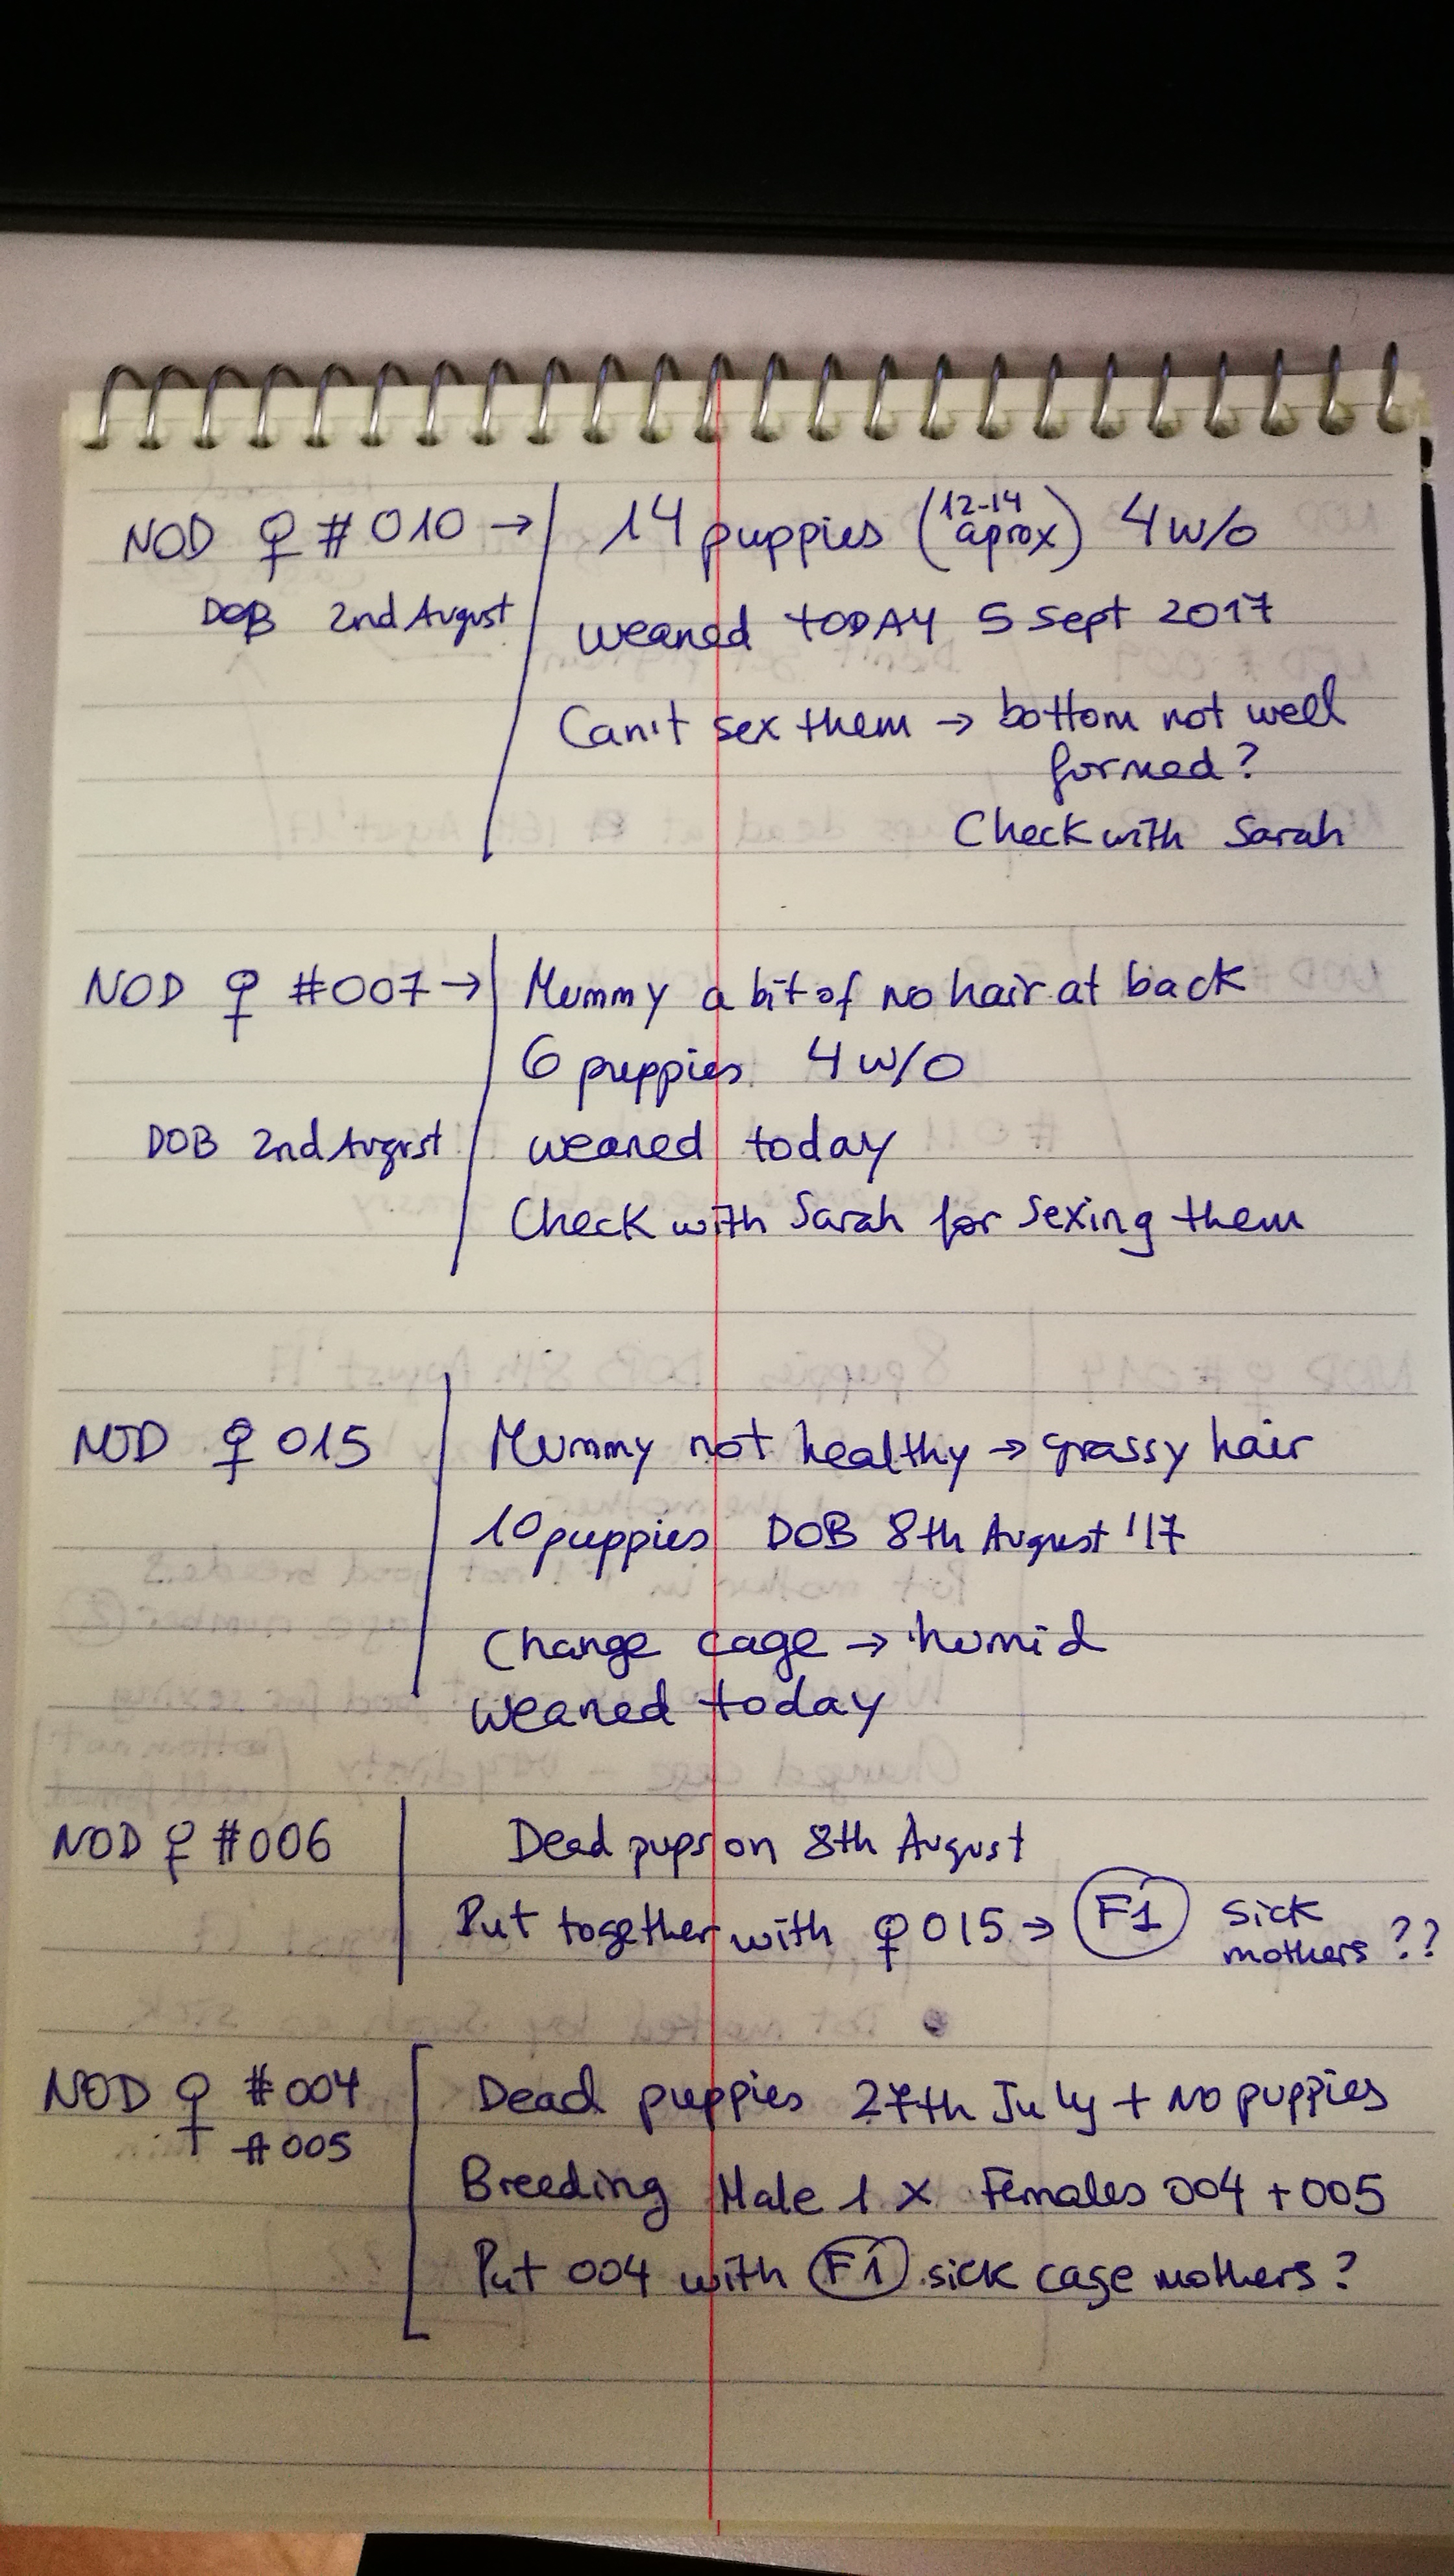 NOD ♀ #010 → 14 puppies (12-14 aprox) 4 w/o
DOB 2nd August weaned TODAY 5 Sept 2017
Can't sex them → bottom not well
formed?
Check with Sarah
NOD ♀ #007 → Mummy a bit of no hair at back
6 puppies 4 w/o
DOB 2nd August weaned today
Check with Sarah for sexing them
NOD ♀ 015 Mummy not healthy → grassy hair
10 puppies DOB 8th August '17
Change cage → humid
weaned today
NOD ♀ #006 Dead pups on 8th August
Put together with ♀ 015 → F1 sick
mothers ??
NOD ♀ #004 Dead puppies 27th July + no puppies
#005
Breeding Male 1 x Females 004 + 005
Put 004 with F1 sick cage mothers?